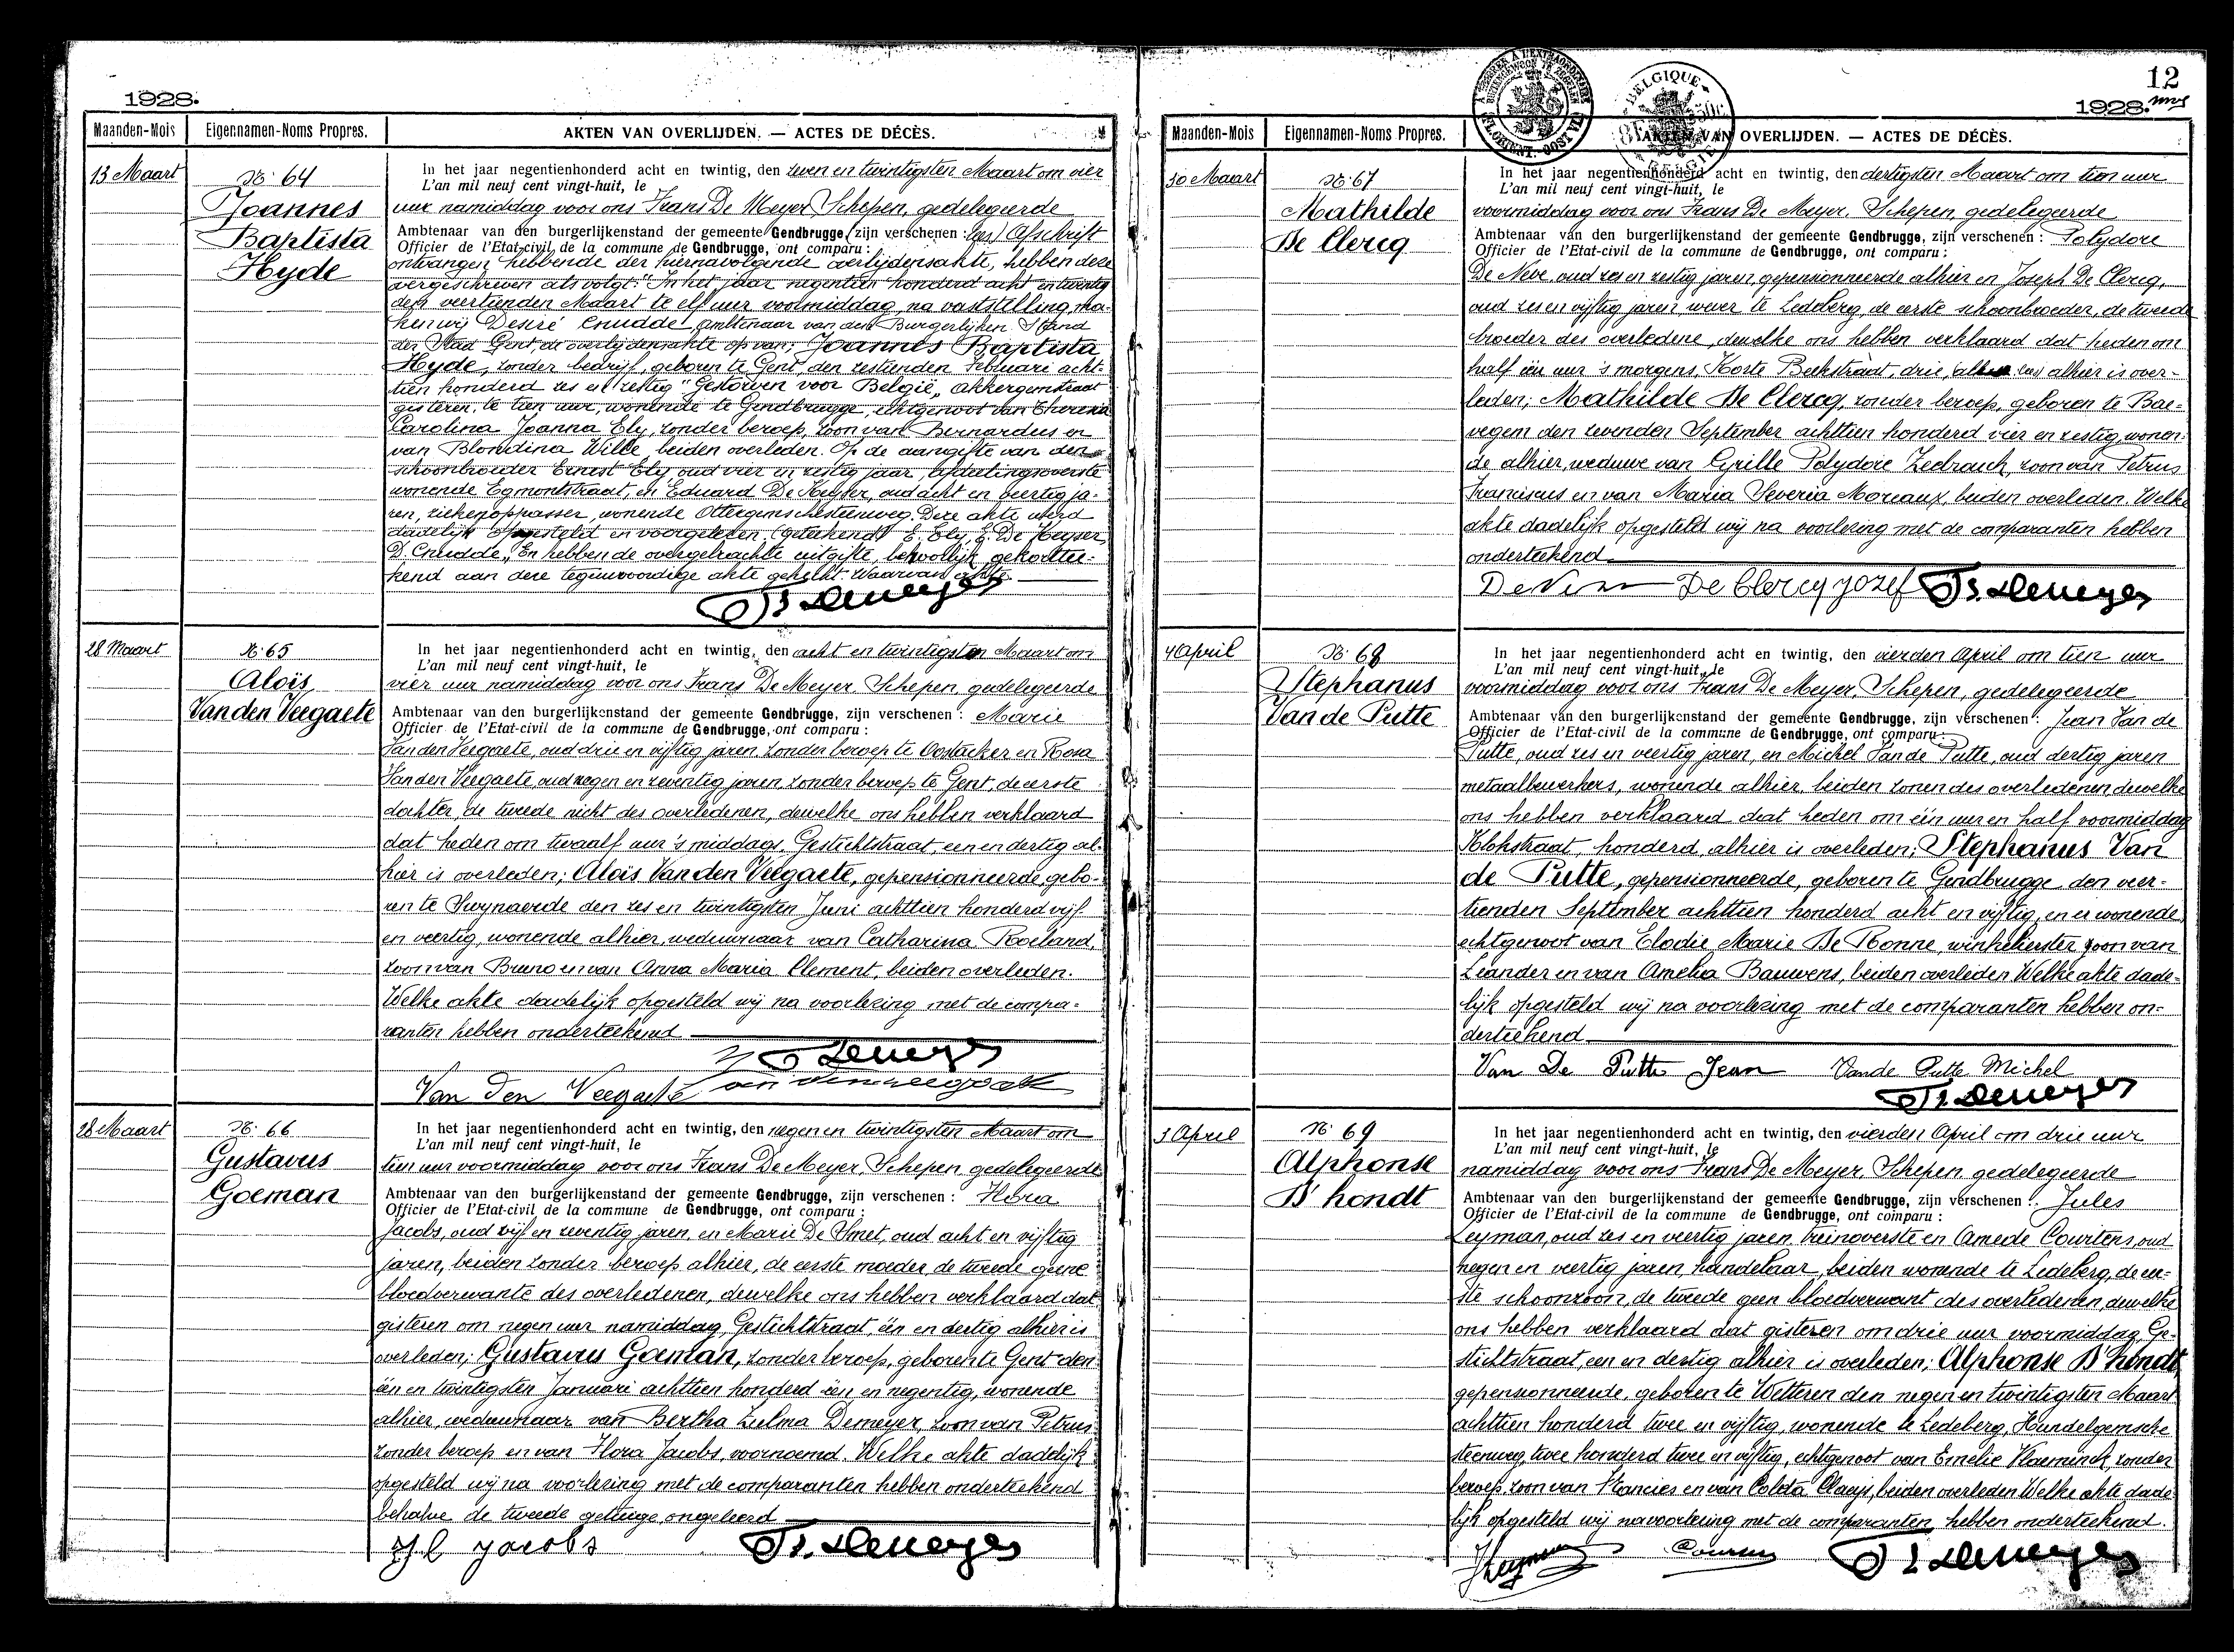 1928.
Maanden-Mois Eigennamen-Noms Propres. AKTEN VAN OVERLIJDEN. — ACTES DE DÉCÈS.
13 Maart
N: 64
Joannes
Baptista
Hyde
In het jaar negentienhonderd acht en twintig, den zeven en twintigsten Maart om vier
L'an mil neuf cent vingt-huit, le
uur namiddag voor ons Frans De Meyer, Schepen, gedelegeerde
Ambtenaar van den burgerlijkenstand der gemeente Gendbrugge, zijn verschenen : Afschrift
Officier de l'Etat-civil de la commune de Gendbrugge, ont comparu :
ontvangen hebbende der hiernavolgende overlijdensakte, hebben deze
overgeschreven als volgt: "In het jaar negentien honderd acht en twintig
den veertienden Maart te elf uur voormiddag, na vaststelling, ma-
ken wij Desiré Cnudde, ambtenaar van den Burgerlijken Stand
der Stad Gent, de overlijdensakte op van: Joannes Baptista
Hyde, zonder bedrijf, geboren te Gent, den zestienden Februari acht-
tien honderd zes en zestig "Gestorven voor België, akkergemstraat
gisteren, te tien uur, wonende te Gendbrugge, echtgenoot van Theresia
Carolina Joanna Ely, zonder beroep, zoon van Bernardus en
van Blondina Wille, beiden overleden. Op de aangifte van den
schoonbroeder Ernest Ely, oud vier en zestig jaar, bedietingsoverste
wonende Egmontstraat, en Eduard De Keyser, oud acht en veertig ja-
ren, ziekenoppasser, wonende Ottergemschesteenweg. Deze akte werd
dadelijk opgesteld en voorgelezen. (Geteekend) E. Ely, E. De Keyser,
D. Cnudde." En hebben de overgebrachte uitgifte, behoorlijk gekorttee-
kend aan deze tegenwoordige akte gehecht. Waarvan akte.
Fr. Demeyer
28 Maart
N: 65
Aloïs
Van den Veegaete
In het jaar negentienhonderd acht en twintig, den acht en twintigsten Maart om
L'an mil neuf cent vingt-huit, le
vier uur namiddag voor ons Frans De Meyer, Schepen, gedelegeerde
Ambtenaar van den burgerlijkenstand der gemeente Gendbrugge, zijn verschenen : Marie
Officier de l'Etat-civil de la commune de Gendbrugge, ont comparu :
Van den Veegaete, oud drie en vijftig jaren, zonder beroep te Oostacker en Rosa
Van den Veegaete, oud negen en zeventig jaren, zonder beroep te Gent, de eerste
dochter, de tweede nicht des overledenen, dewelke ons hebben verklaard
dat heden om twaalf uur 's middags, Gestichtstraat, een en dertig al-
hier is overleden; Aloïs Van den Veegaete, gepensionneerde, gebo-
ren te Swynaerde den zes en twintigsten Juni achttien honderd vijf
en veertig, wonende alhier, weduwnaar van Catharina Roeland,
zoon van Bruno en van Anna Maria Clement, beiden overleden.
Welke akte dadelijk opgesteld wij na voorlezing met de compa-
ranten hebben onderteekend
Fr. Demeyer
Van Den Veegaete
28 Maart
N: 66
Gustavus
Goeman
In het jaar negentienhonderd acht en twintig, den negen en twintigsten Maart om
L'an mil neuf cent vingt-huit, le
tien uur voormiddag voor ons Frans De Meyer, Schepen, gedelegeerde
Ambtenaar van den burgerlijkenstand der gemeente Gendbrugge, zijn verschenen : Flora
Officier de l'Etat-civil de la commune de Gendbrugge, ont comparu :
Jacobs, oud vijf en zeventig jaren, en Marie De Smet, oud acht en vijftig
jaren, beiden zonder beroep alhier, de eerste moeder, de tweede geene
bloedverwante des overledenen, dewelke ons hebben verklaard dat
gisteren om negen uur namiddag, Gestichtstraat, één en dertig alhier is
overleden; Gustavus Goeman, zonder beroep, geboren te Gent den
één en twintigsten Januari achttien honderd één en negentig, wonende
alhier, weduwnaar van Bertha Zulma Demeyer, zoon van Petrus
zonder beroep en van Flora Jacobs, voornoemd. Welke akte dadelijk
opgesteld wij na voorlezing met de comparanten hebben onderteekend
behalve de tweede getuige, ongeleerd
Fl Jacobs Fr. Demeyer
12
1928.
Maanden-Mois Eigennamen-Noms Propres. AKTEN VAN OVERLIJDEN. — ACTES DE DÉCÈS.
BELGIQUE
BELGIE
30 Maart
N: 67
Mathilde
De Clercq
In het jaar negentienhonderd acht en twintig, den dertigsten Maart om tien uur
L'an mil neuf cent vingt-huit, le
voormiddag voor ons Frans De Meyer, Schepen, gedelegeerde
Ambtenaar van den burgerlijkenstand der gemeente Gendbrugge, zijn verschenen : Polydore
Officier de l'Etat-civil de la commune de Gendbrugge, ont comparu :
De Neve, oud zes en zestig jaren, gepensionneerde alhier en Joseph De Clercq,
oud zes en vijftig jaren wever te Ledeberg, de eerste schoonbroeder, de tweede
broeder des overledene, dewelke ons hebben verklaard dat heden om
half één uur 's morgens, Korte Beekstraat, drie, alhier is over-
leden; Mathilde De Clercq, zonder beroep, geboren te Bae-
vegem den zevenden September achttien honderd vier en zestig, wonen-
de alhier, weduwe van Cyrille Polydore Zeebrauck, zoon van Petrus
Franciscus en van Maria Severia Moreaux, beiden overleden. Welke
akte dadelijk opgesteld wij na voorlezing met de comparanten hebben
onderteekend
De Neve De Clercq Jozef Fr. Demeyer
4 April
N: 68
Stephanus
Van de Putte
In het jaar negentienhonderd acht en twintig, den vierden April om tien uur
L'an mil neuf cent vingt-huit, le
voormiddag voor ons Frans De Meyer, Schepen, gedelegeerde
Ambtenaar van den burgerlijkenstand der gemeente Gendbrugge, zijn verschenen : Jean Van de
Officier de l'Etat-civil de la commune de Gendbrugge, ont comparu :
Putte, oud zes en veertig jaren, en Michel Van de Putte, oud dertig jaren
metaalbewerkers, wonende alhier, beiden zonen des overledenen, dewelke
ons hebben verklaard dat heden om één uur en half voormiddag
Klokstraat, honderd, alhier is overleden; Stephanus Van
de Putte, gepensionneerde, geboren te Gendbrugge den veer-
tienden September achttien honderd acht en vijftig, en er wonende,
echtgenoot van Elodie Marie De Ronne, winkelierster zoon van
Leander en van Amelia Bauwens, beiden overleden. Welke akte dade-
lijk opgesteld wij na voorlezing met de comparanten hebben on-
derteekend
Van De Putte Jean Van de Putte Michel
Fr. Demeyer
3 April
N: 69
Alphonse
D'hondt
In het jaar negentienhonderd acht en twintig, den vierden April om drie uur
L'an mil neuf cent vingt-huit, le
namiddag voor ons Frans De Meyer, Schepen, gedelegeerde
Ambtenaar van den burgerlijkenstand der gemeente Gendbrugge, zijn verschenen : Jules
Officier de l'Etat-civil de la commune de Gendbrugge, ont comparu :
Leyman, oud zes en veertig jaren, treinoverste en Amede Courtens, oud
negen en veertig jaren, handelaar, beiden wonende te Ledeberg, de eer-
ste schoonzoon, de tweede geen bloedverwant des overledenen, dewelke
ons hebben verklaard dat gisteren om drie uur voormiddag, Ge-
stichtstraat, een en dertig alhier is overleden; Alphonse D'hondt,
gepensionneerde, geboren te Wetteren den negen en twintigsten Maart
achttien honderd twee en vijftig, wonende te Ledeberg, Hundelgemsche
steenweg, twee honderd twee en vijftig, echtgenoot van Emelie Vlaeminck, zonder
beroep, zoon van Francies en van Coleta Claeys, beiden overleden. Welke akte dade-
lijk opgesteld wij na voorlezing met de comparanten hebben onderteekend.
Fr. Demeyer